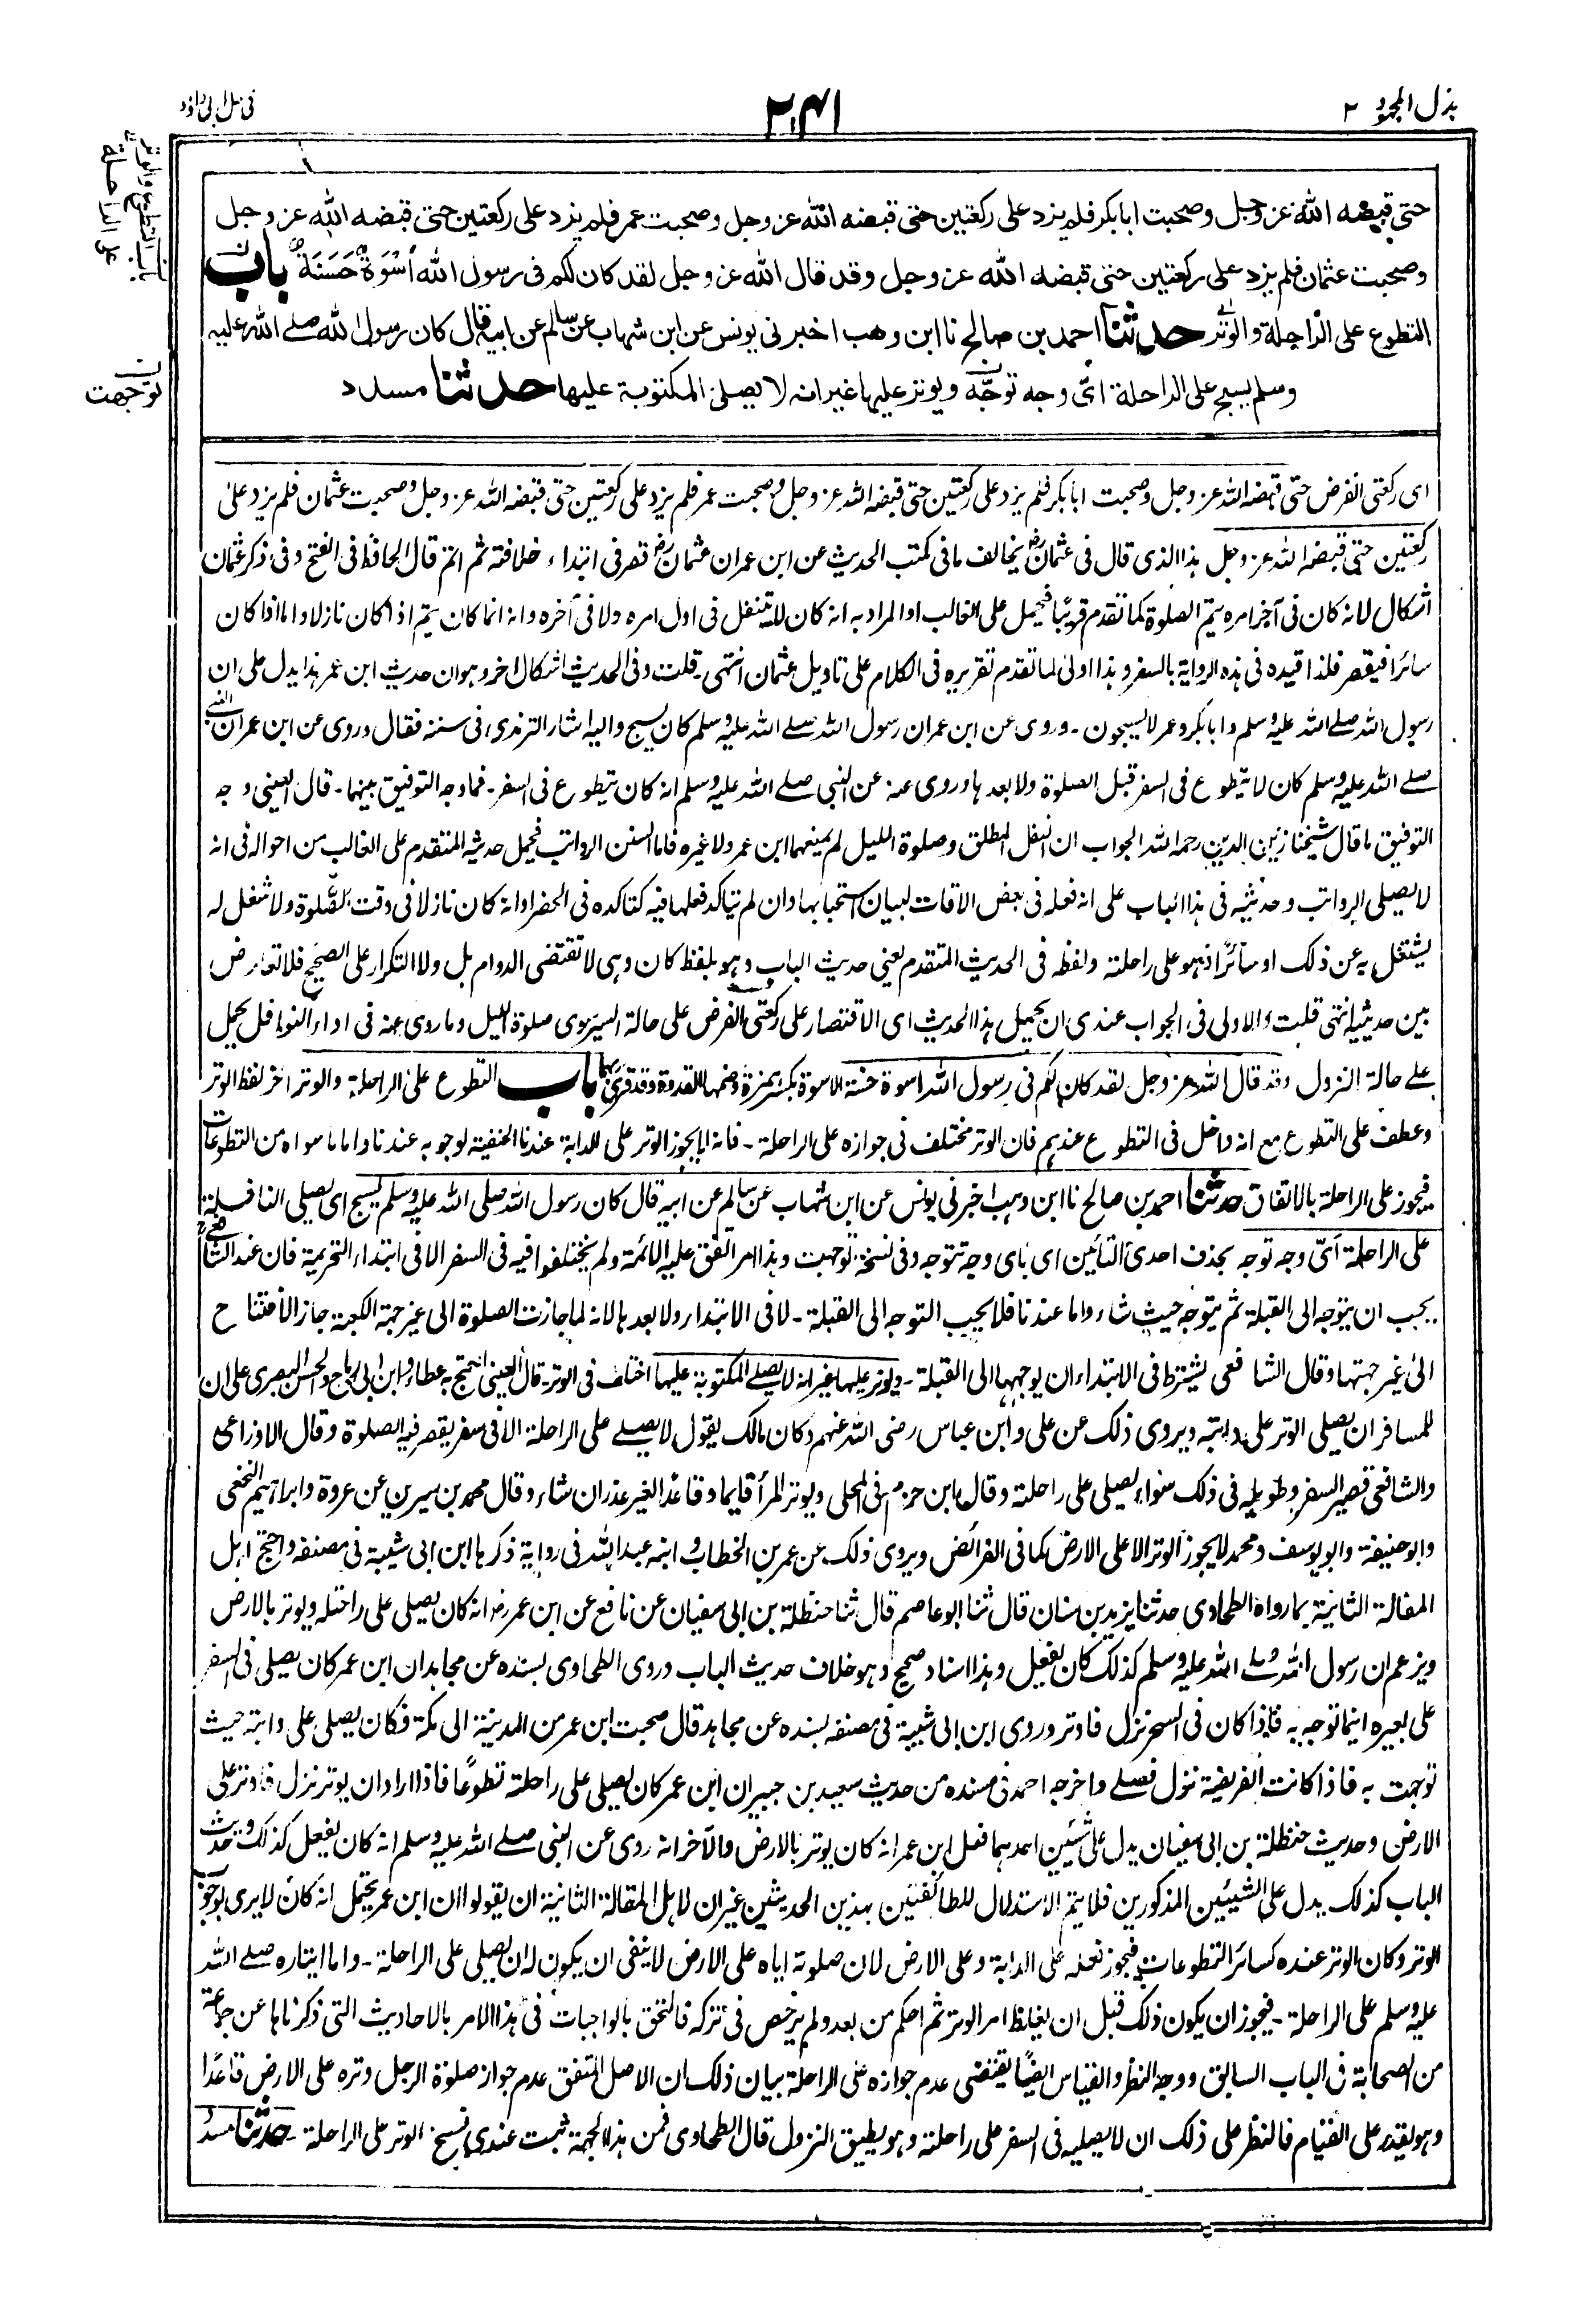 بذل المجهود ٢
٢٤١
في حل ابي داؤد
باب التطوع والوتر
على الراحلة
توجهت
حتى قبضه الله عز وجل وصحبت ابا بكر فلم يزد على ركعتين حتى قبضه الله عز وجل وصحبت عمر فلم يزد على ركعتين حتى قبضه الله عز وجل
وصحبت عثمان فلم يزد على ركعتين حتى قبضه الله عز وجل وقد قال الله عز وجل لقد كان لكم فى رسول الله أُسْوَةٌ حَسَنَةٌ باب
التطوع على الراحلة والوتر حدثنا احمد بن صالح نا ابن وهب اخبرنى يونس عن ابن شهاب عن سالم عن ابيه قال كان رسول الله صلے الله عليه
وسلم يسبح على الراحلة اىّ وجه توجّه ويوتر عليها غير انه لا يصلى المكتوبة عليها حدثنا مسدد
اى ركعتى الفرض حتى قبضه الله عز وجل وصحبت ابا بكر فلم يزد على ركعتين حتى قبضه الله عز وجل وصحبت عمر فلم يزد على ركعتين حتى قبضه الله عز وجل وصحبت عثمان فلم يزد على
ركعتين حتى قبضه الله عز وجل هذا الذى قال فى عثمانؓ يخالف ما فى كتب الحديث عن ابن عمر ان عثمانؓ قصر فى ابتداء خلافته ثم اتم قال الحافظ فى الفتح وفى ذكر عثمان
اشكال لانه كان فى آخر امره يتم الصلوة كما تقدم قريبًا فيحمل على الغالب او المراد به انه كان لا يتنفل فى اول امره ولا فى آخره وانه انما كان يتم اذا كان نازلا واما اذا كان
سائرا فيقصر فلذا قيده فى هذه الرواية بالسفر وهذا اولى لما تقدم تقريره فى الكلام على تاويل عثمان انتهى۔ قلت وفى الحديث اشكال اخر وهو ان حديث ابن عمر هذا يدل على ان
رسول الله صلے الله عليه وسلم وابا بكر وعمر لا يسبحون۔ وروى عن ابن عمر ان رسول الله صلے الله عليه وسلم كان يسبح واليه اشار الترمذى فى سننه فقال وروى عن ابن عمر ان النبى
صلے الله عليه وسلم كان لا يتطوع فى السفر قبل الصلوة ولا بعدها وروى عنه عن النبى صلے الله عليه وسلم انه كان يتطوع فى السفر۔ فما وجه التوفيق بينهما۔ قال العينى وجه
التوفيق ما قال شيخنا زين الدين رحمه الله الجواب ان النفل المطلق وصلوة الليل لم يمنعهما ابن عمر ولا غيره فاما السنن الرواتب فيحمل حديثه المتقدم على الغالب من احواله فى انه
لا يصلى الرواتب وحديثه فى هذا الباب على انه فعله فى بعض الاقات لبيان استحبابها وان لم يتاكد فعلها فيه كتاكده فى الحضر او انه كان نازلا فى وقت الصلوة ولا شغل له
يشتغل به عن ذلك او سائرًا وهو على راحلته ولفظه فى الحديث المتقدم يعنى حديث الباب وهو بلفظ كان وهى لا تقتضى الدوام بل ولا التكرار على الصحيح فلا تعارض
بين حديثيه انتهى قلت والاولى فى الجواب عندى ان يحمل هذا الحديث اى الاقتصار على ركعتى الفرض على حالة السير سوى صلوة الليل وما روى عنه فى اداء النوافل يحمل
على حالة النزول وقد قال الله عز وجل لقد كان لكم فى رسول الله اسوة حسنة الاسوة بكسر همزة وضمها القدوة وقد قرئ بهما باب التطوع على الراحلة والوتر اخر لفظ الوتر
وعطف على التطوع مع انه داخل فى التطوع عندهم فان الوتر مختلف فى جوازه على الراحلة۔ فانه لا يجوز الوتر على الدابة عندنا الحنفية لوجوبه عندنا واما ما سواه من التطوعات
فيجوز على الراحلة بالاتفاق حدثنا احمد بن صالح نا ابن وهب اخبرنى يونس عن ابن شهاب عن سالم عن ابيه قال كان رسول الله صلى الله عليه وسلم يسبح اى يصلى النافلة
على الراحلة اىّ وجه توجه بحذف احدى التائين اى باى وجه تتوجه وفى نسخة توجهت وهذا امر اتفق عليه الائمة ولم يختلفوا فيه فى السفر الا فى ابتداء التحريمة فان عند الشافعىؒ
يجب ان يتوجه الى القبلة ثم يتوجه حيث شاء واما عندنا فلا يجب التوجه الى القبلة۔ لا فى الابتداء ولا بعدها لانه لما جازت الصلوة الى غير جهة الكعبة جاز الافتتاح
الى غير جهتها وقال الشافعى يشترط فى الابتداء ان يوجهها الى القبلة۔ ويوتر عليها غير انه لا يصلے المكتوبة عليها اختلف فى الوتر۔ قال العينى احتج به عطاء وابن ابى رباح والحسن البصرى على ان
للمسافر ان يصلى الوتر على دابته ويروى ذلك عن على وابن عباس رضى الله عنهم وكان مالك يقول لا يصلے على الراحلة الا فى سفر يقصر فيه الصلوة وقال الاوزاعى
والشافعى قصير السفر وطويله فى ذلك سواء يصلى على راحلته وقال ابن حزم فى المحلى ويوتر المرأ قايما وقاعدًا لغير عذر ان شاء وقال محمد بن سيرين عن عروة وابراهيم النخعى
وابو حنيفة وابو يوسف ومحمد لا يجوز الوتر الا على الارض كما فى الفرائض ويروى ذلك عن عمر بن الخطاب وابنه عبد الله فى رواية ذكرها ابن ابى شيبة فى مصنفه واحتج اهل
المقالة الثانية بما رواه الطحاوى حدثنا يزيد بن سنان قال ثنا ابو عاصم قال ثنا حنظلة بن ابى سفيان عن نافع عن ابن عمر رض انه كان يصلى على راحلته ويوتر بالارض
ويزعم ان رسول الله صلے الله عليه وسلم كذلك كان يفعل وهذا اسناد صحيح وهو خلاف حديث الباب وروى الطحاوى بسنده عن مجاهد ان ابن عمر كان يصلى فى السفر
على بعيره اينما توجه به فاذا كان فى السحر نزل فاوتر وروى ابن ابى شيبة فى مصنفه بسنده عن مجاهد قال صحبت ابن عمر من المدينة الى مكة فكان يصلى على دابته حيث
توجهت به فاذا كانت الفريضة نزل فصلے واخرجه احمد فى مسنده من حديث سعيد بن جبير ان ابن عمر كان يصلى على راحلته تطوعًا فاذا اراد ان يوتر نزل فاوتر على
الارض وحديث حنظلة بن ابى سفيان يدل على شيئين احدهما فعل ابن عمر انه كان يوتر بالارض والآخر انه روى عن النبى صلے الله عليه وسلم انه كان يفعل كذلك وحديث
الباب كذلك يدل على الشيئين المذكورين فلا يتم الاستدلال للطائفتين بهذين الحديثين غير ان لاهل المقالة الثانية ان يقولوا ان ابن عمر يحتمل انه كان لا يرى بوجوب
الوتر وكان الوتر عنده كسائر التطوعات فيجوز فعله على الدابة وعلى الارض لان صلوته اياه على الارض لا ينفى ان يكون له ان يصلى على الراحلة۔ واما ايتاره صلے الله
عليه وسلم على الراحلة۔ فيجوز ان يكون ذلك قبل ان يغلظ امر الوتر ثم احكم من بعد ولم يرخص فى تركه فالتحق بالواجبات فى هذا الامر بالاحاديث التى ذكرناها عن جماعة
من الصحابة فى الباب السابق ووجه النظر والقياس ايضًا يقتضى عدم جوازه على الراحلة بيان ذلك ان الاصل المتفق عدم جواز صلوة الرجل وتره على الارض قاعدًا
وهو يقدر على القيام فالنظر على ذلك ان لا يصليه فى السفر على راحلته وهو يطيق النزول قال الطحاوى فمن هذه الجهة ثبت عندى نسخ الوتر على الراحلة۔ حدثنا مسدد